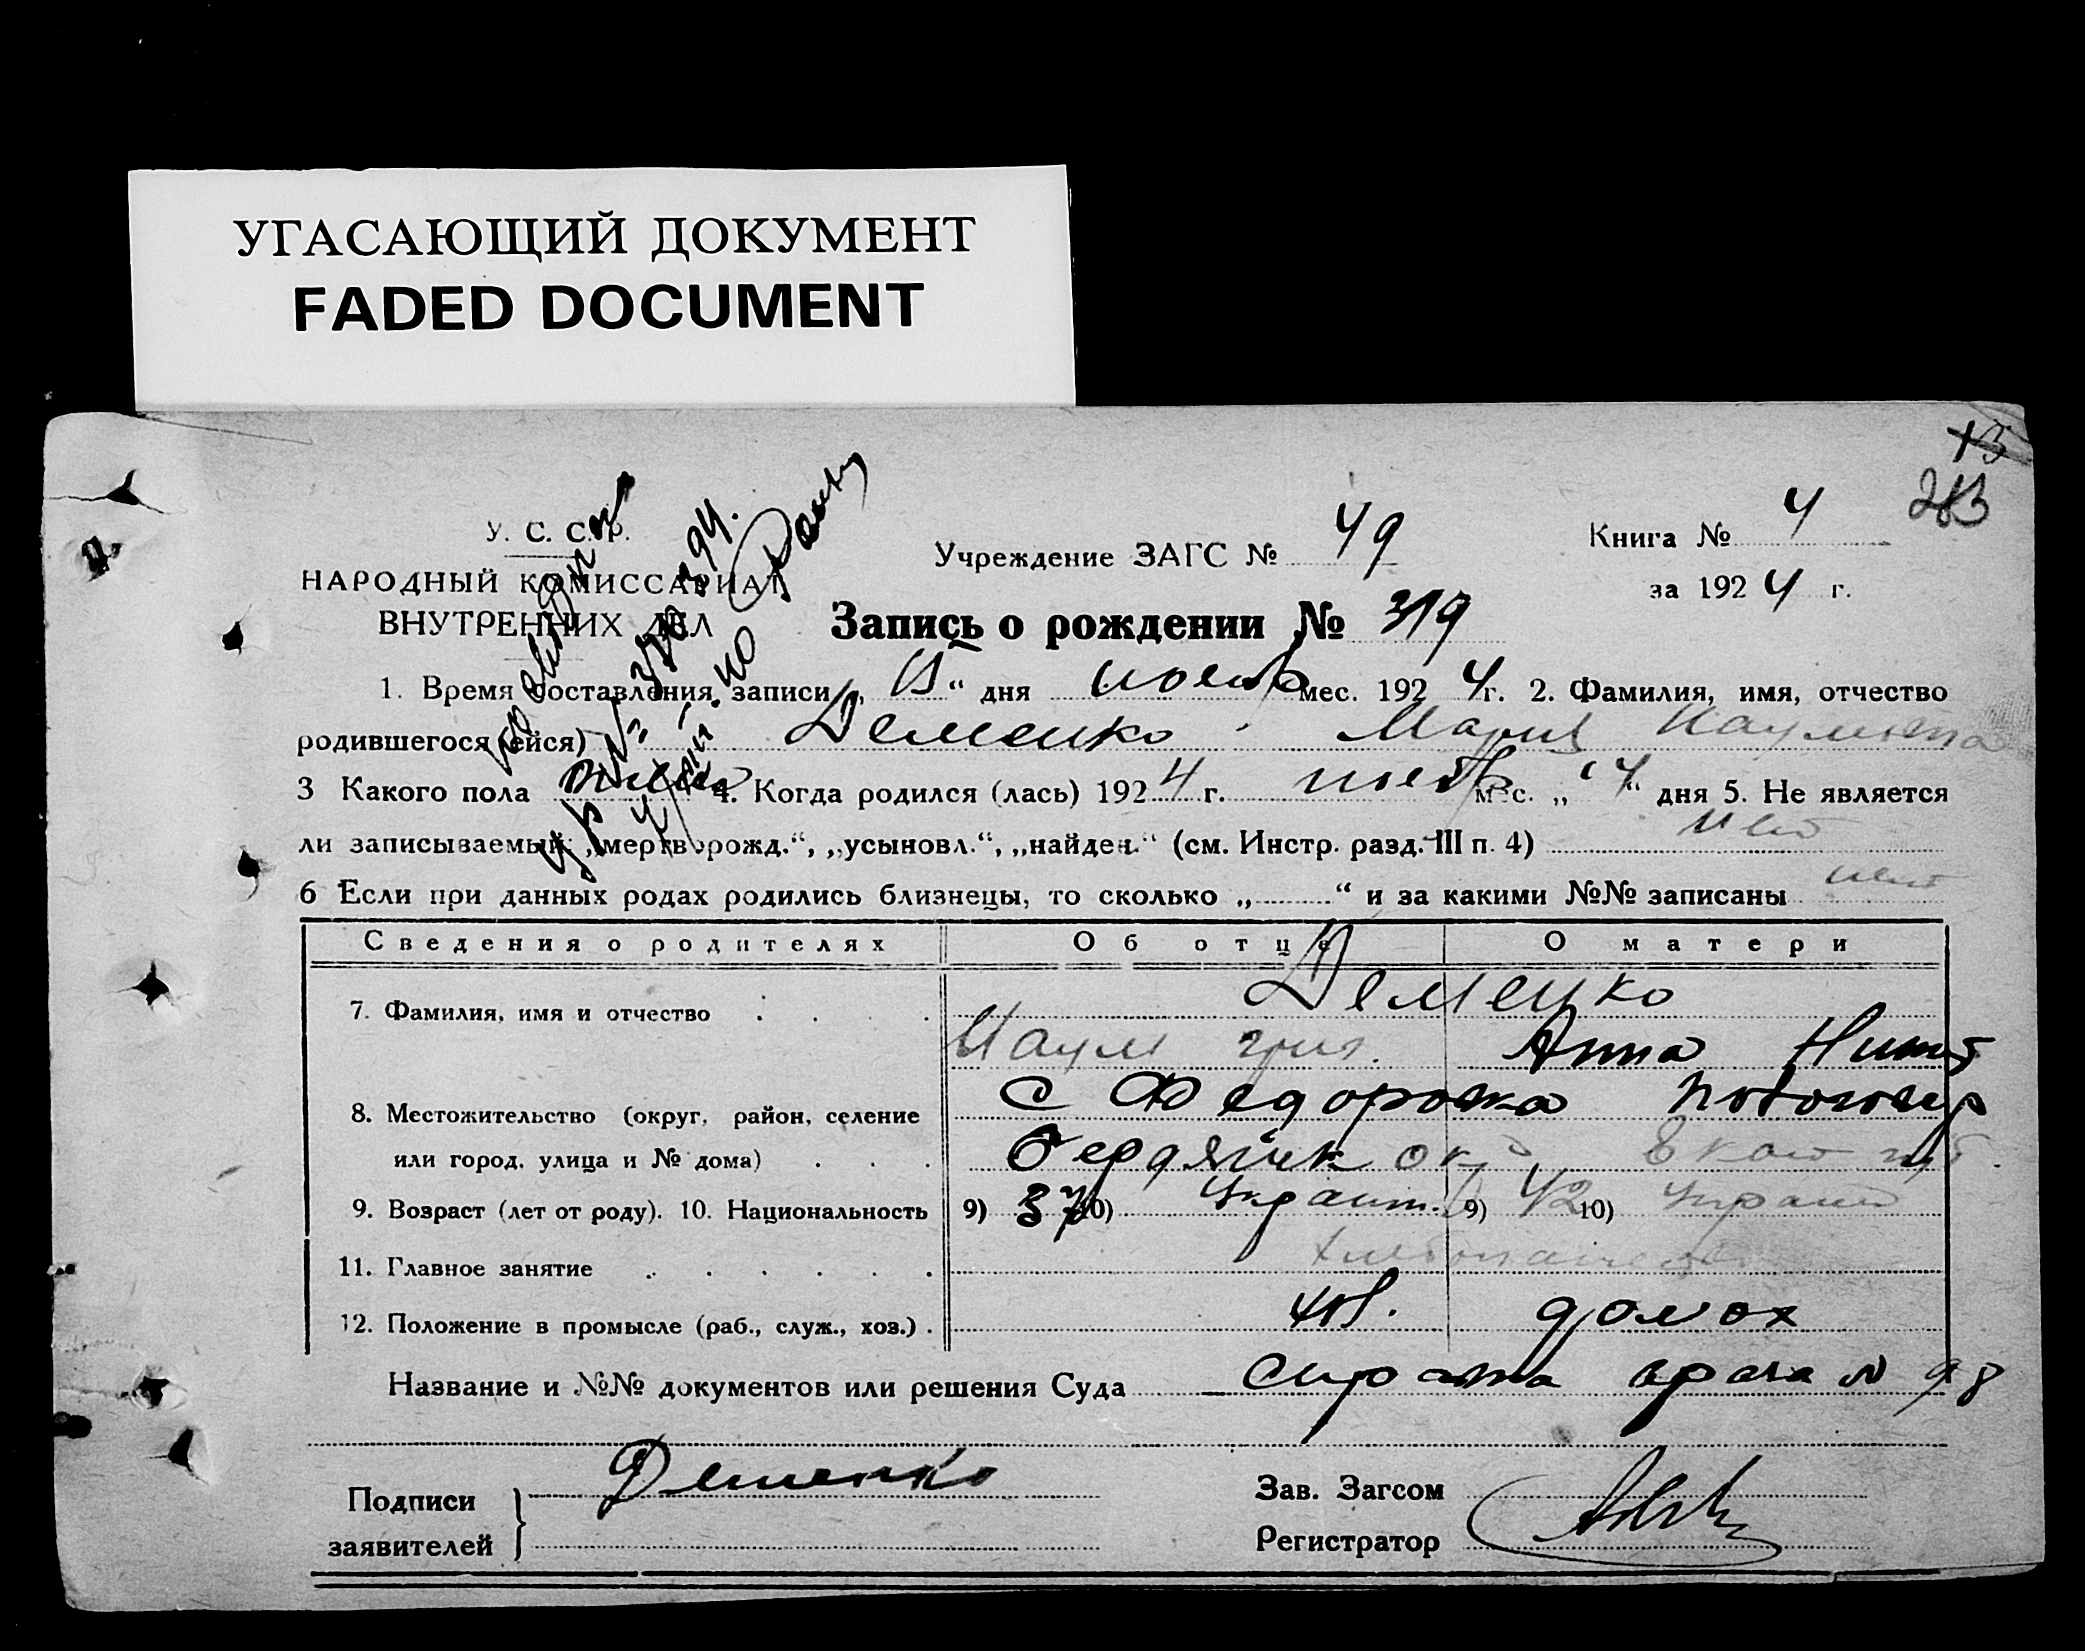 УГАСАЮЩИЙ ДОКУМЕНТ
FADED DOCUMENT
283
У. С. С. Р.
НАРОДНЫЙ КОМИССАРИАТ
ВНУТРЕННИХ ДЕЛ
Учреждение ЗАГС № 49
Книга № 4
за 1924 г.
Запись о рождении № 319
1. Время составления записи „ “ дня мес. 1924 г. 2. Фамилия, имя, отчество
родившегося (ейся) Деменко Мария Наумовна
3 Какого пола 4. Когда родился (лась) 1924 г. мес. „4“ дня 5. Не является
ли записываемый: „мертворожд.“, „усыновл.“, „найден.“ (см. Инстр. разд. III п. 4) нет
6 Если при данных родах родились близнецы, то сколько „ “ и за какими №№ записаны нет
Сведения о родителях Об отце О матери
7. Фамилия, имя и отчество Деменко
Наум Григ. Анна Никит
8. Местожительство (округ, район, селение с Федоровка
или город, улица и № дома) Бердянск окр Екат губ.
9. Возраст (лет от роду). 10. Национальность 9) 37 10) Украин. 9) 42 10) Украин
11. Главное занятие хлебопашество
12. Положение в промысле (раб., служ., хоз.) домох
Название и №№ документов или решения Суда врача № 98
Подписи заявителей Деменко
Зав. Загсом
Регистратор